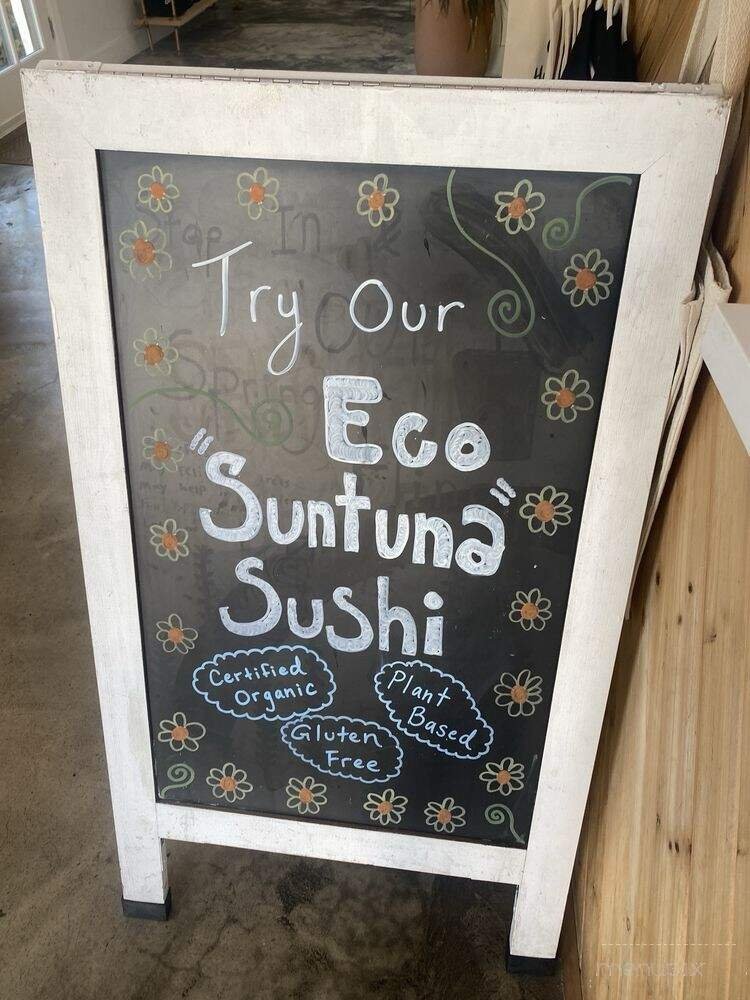 Try Our
Eco
"Suntuna"
Sushi
Certified
Organic
Plant
Based
Gluten
Free